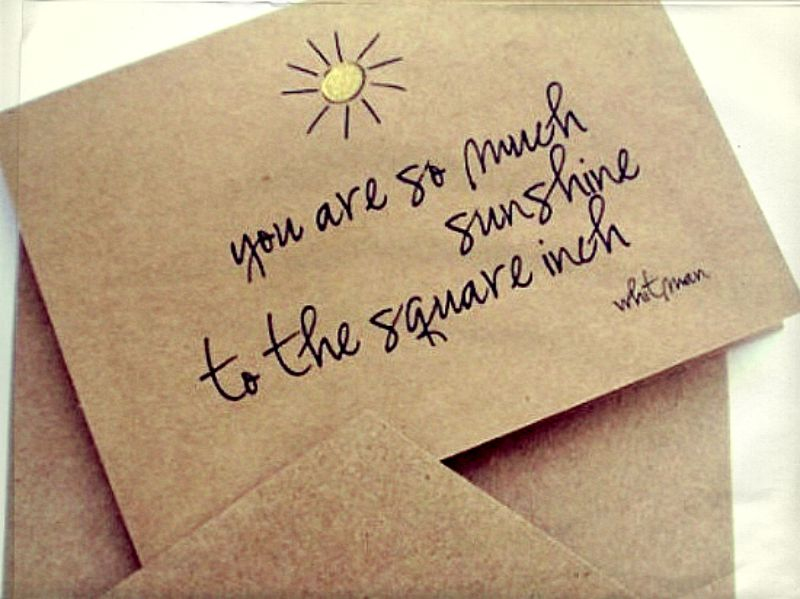 you are so much
sunshine
to the square inch
whitman